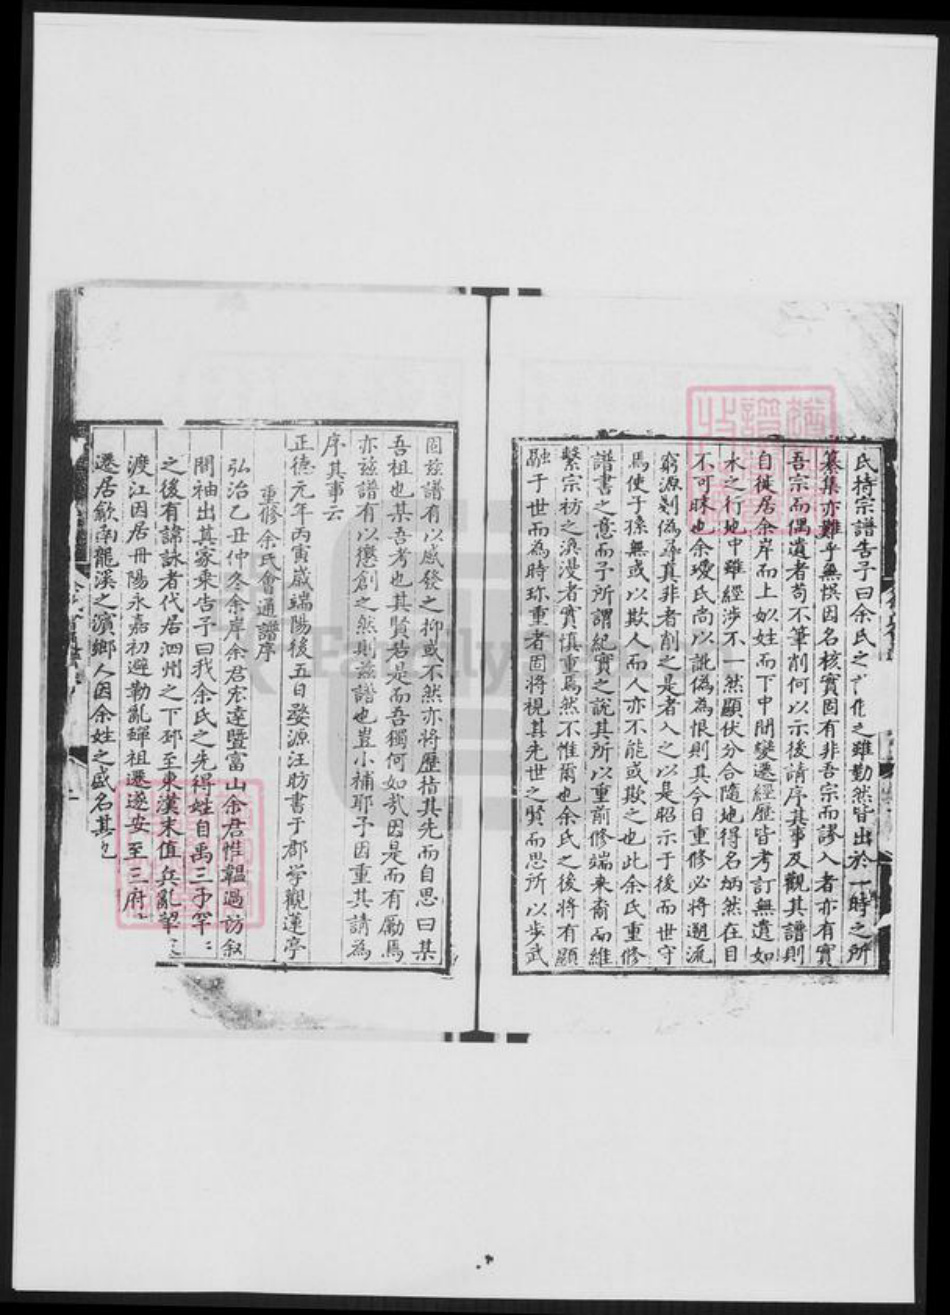 氏持宗譜告予曰余氏之譜作之雖勤然皆出於一時之所
纂集亦難乎無悞因名核實固有非吾宗而謬入者亦有實
吾宗而偶遺者苟不筆削何以示後請序其事及觀其譜則
自徙居余岸而上如姓而下中間變遷經歷皆考訂無遺如
水之行地中雖經涉不一然顯伏分合隨地得名炳然在目
不可昧也余璦氏尚以訛偽為恨則其今日重修必將遡流
窮源剔偽尋真非者削之是者入之以是昭示于後而世守
焉使子孫無或以欺人而人亦不能或欺之也此余氏重修
譜書之意而予所謂紀實之說其所以重前修端來裔而維
繫宗祊之渙漫者實慎重焉然不惟爾也余氏之後將有顯
融于世而為時珍重者固將視其先世之賢而思所以步武
固玆譜有以感發之抑或不然亦將歷指其先而自思曰某
吾祖也某吾考也其賢若是而吾獨何如哉因是而有勵焉
亦玆譜有以懲創之然則玆譜也豈小補耶予因重其請為
序其事云
正德元年丙寅歲端陽後五日婺源汪昉書于郡學觀蓮亭
重修余氏會通譜序
弘治乙丑仲冬余岸余君宏達暨富山余君惟韞過訪叙
間袖出其家乘告予曰我余氏之先得姓自禹三子罕
之後有諱詠者代居泗州之下邳至東漢末值兵亂挈
渡江因居丹陽永嘉初避勒亂繹祖遷遂安至三府
遷居歙南龍溪之濱鄉人因余姓之盛名其